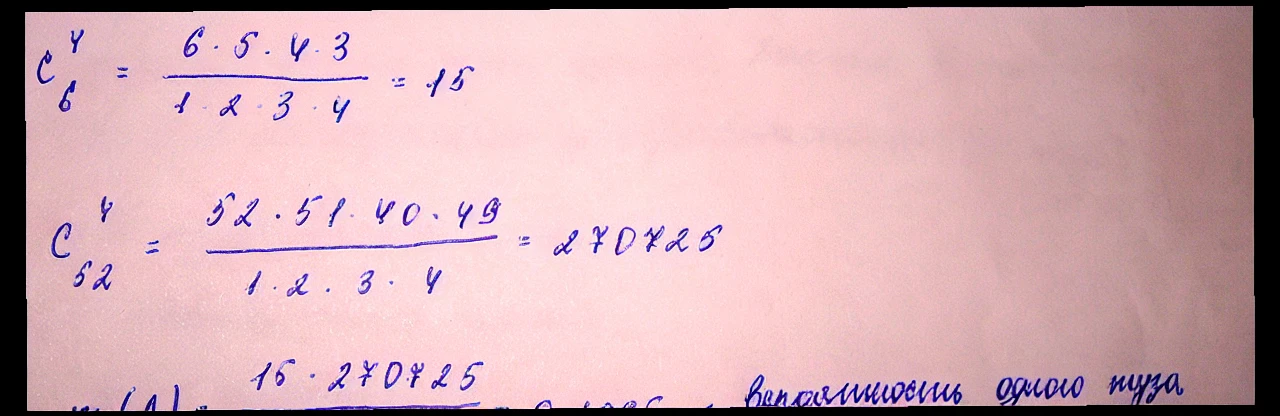 C₆⁴ = (6 · 5 · 4 · 3) / (1 · 2 · 3 · 4) = 15
C₅₂⁴ = (52 · 51 · 40 · 49) / (1 · 2 · 3 · 4) = 270725
15 · 270725
вероятность одного туза